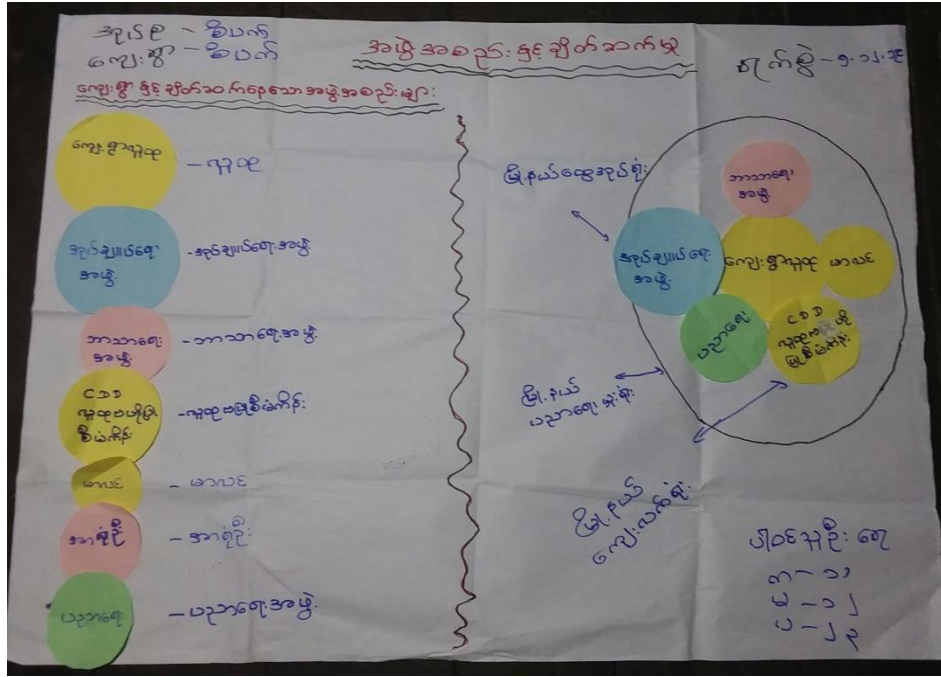 အုပ်စု - စီပက်
ကျေးရွာ - စီပက်
အဖွဲ့အစည်းနှင့်ချိတ်ဆက်မှု
ရက်စွဲ -
ကျေးရွာနှင့်ချိတ်ဆက်နေသောအဖွဲ့အစည်းများ
ကျေးရွာလူထု
- လူထု
အုပ်ချုပ်ရေး
အဖွဲ့
- အုပ်ချုပ်ရေးအဖွဲ့
ဘာသာရေး
အဖွဲ့
- ဘာသာရေးအဖွဲ့
CDD
လူထုဗဟိုပြု
စီမံကိန်း
- လူထုဗဟိုပြုစီမံကိန်း
မာလင်
- မာလင်
အာရုံဦး
- အာရုံဦး
ပညာရေး
- ပညာရေးအဖွဲ့
မြို့နယ်ထွေအုပ်ရုံး
ဘာသာရေး
အဖွဲ့
အုပ်ချုပ်ရေး
အဖွဲ့
ကျေးရွာလူထု
မာလင်
ပညာရေး
CDD
လူထုဗဟို
ပြုစီမံကိန်း
မြို့နယ်
ပညာရေးမှူးရုံး
မြို့နယ်
ကျေးလက်ရုံး
ပါဝင်သူဦးရေ
ကျ - ၁၁
မ - ၁၂
ပ - ၂၃